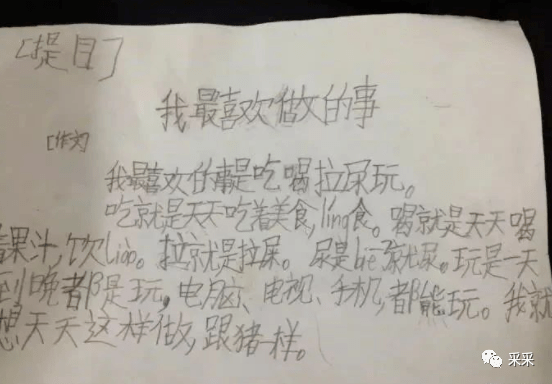 [提目]
我最喜欢做的事
[作文]
我最喜欢的事是吃喝拉尿玩。
吃就是天天吃着美食,ling食。喝就是天天喝
着果汁,饮liào。拉就是拉屎。尿是biē就尿。玩是一天
到晚都是玩,电脑、电视、手机,都能玩。我就
想天天这样做,跟猪一样。
采采